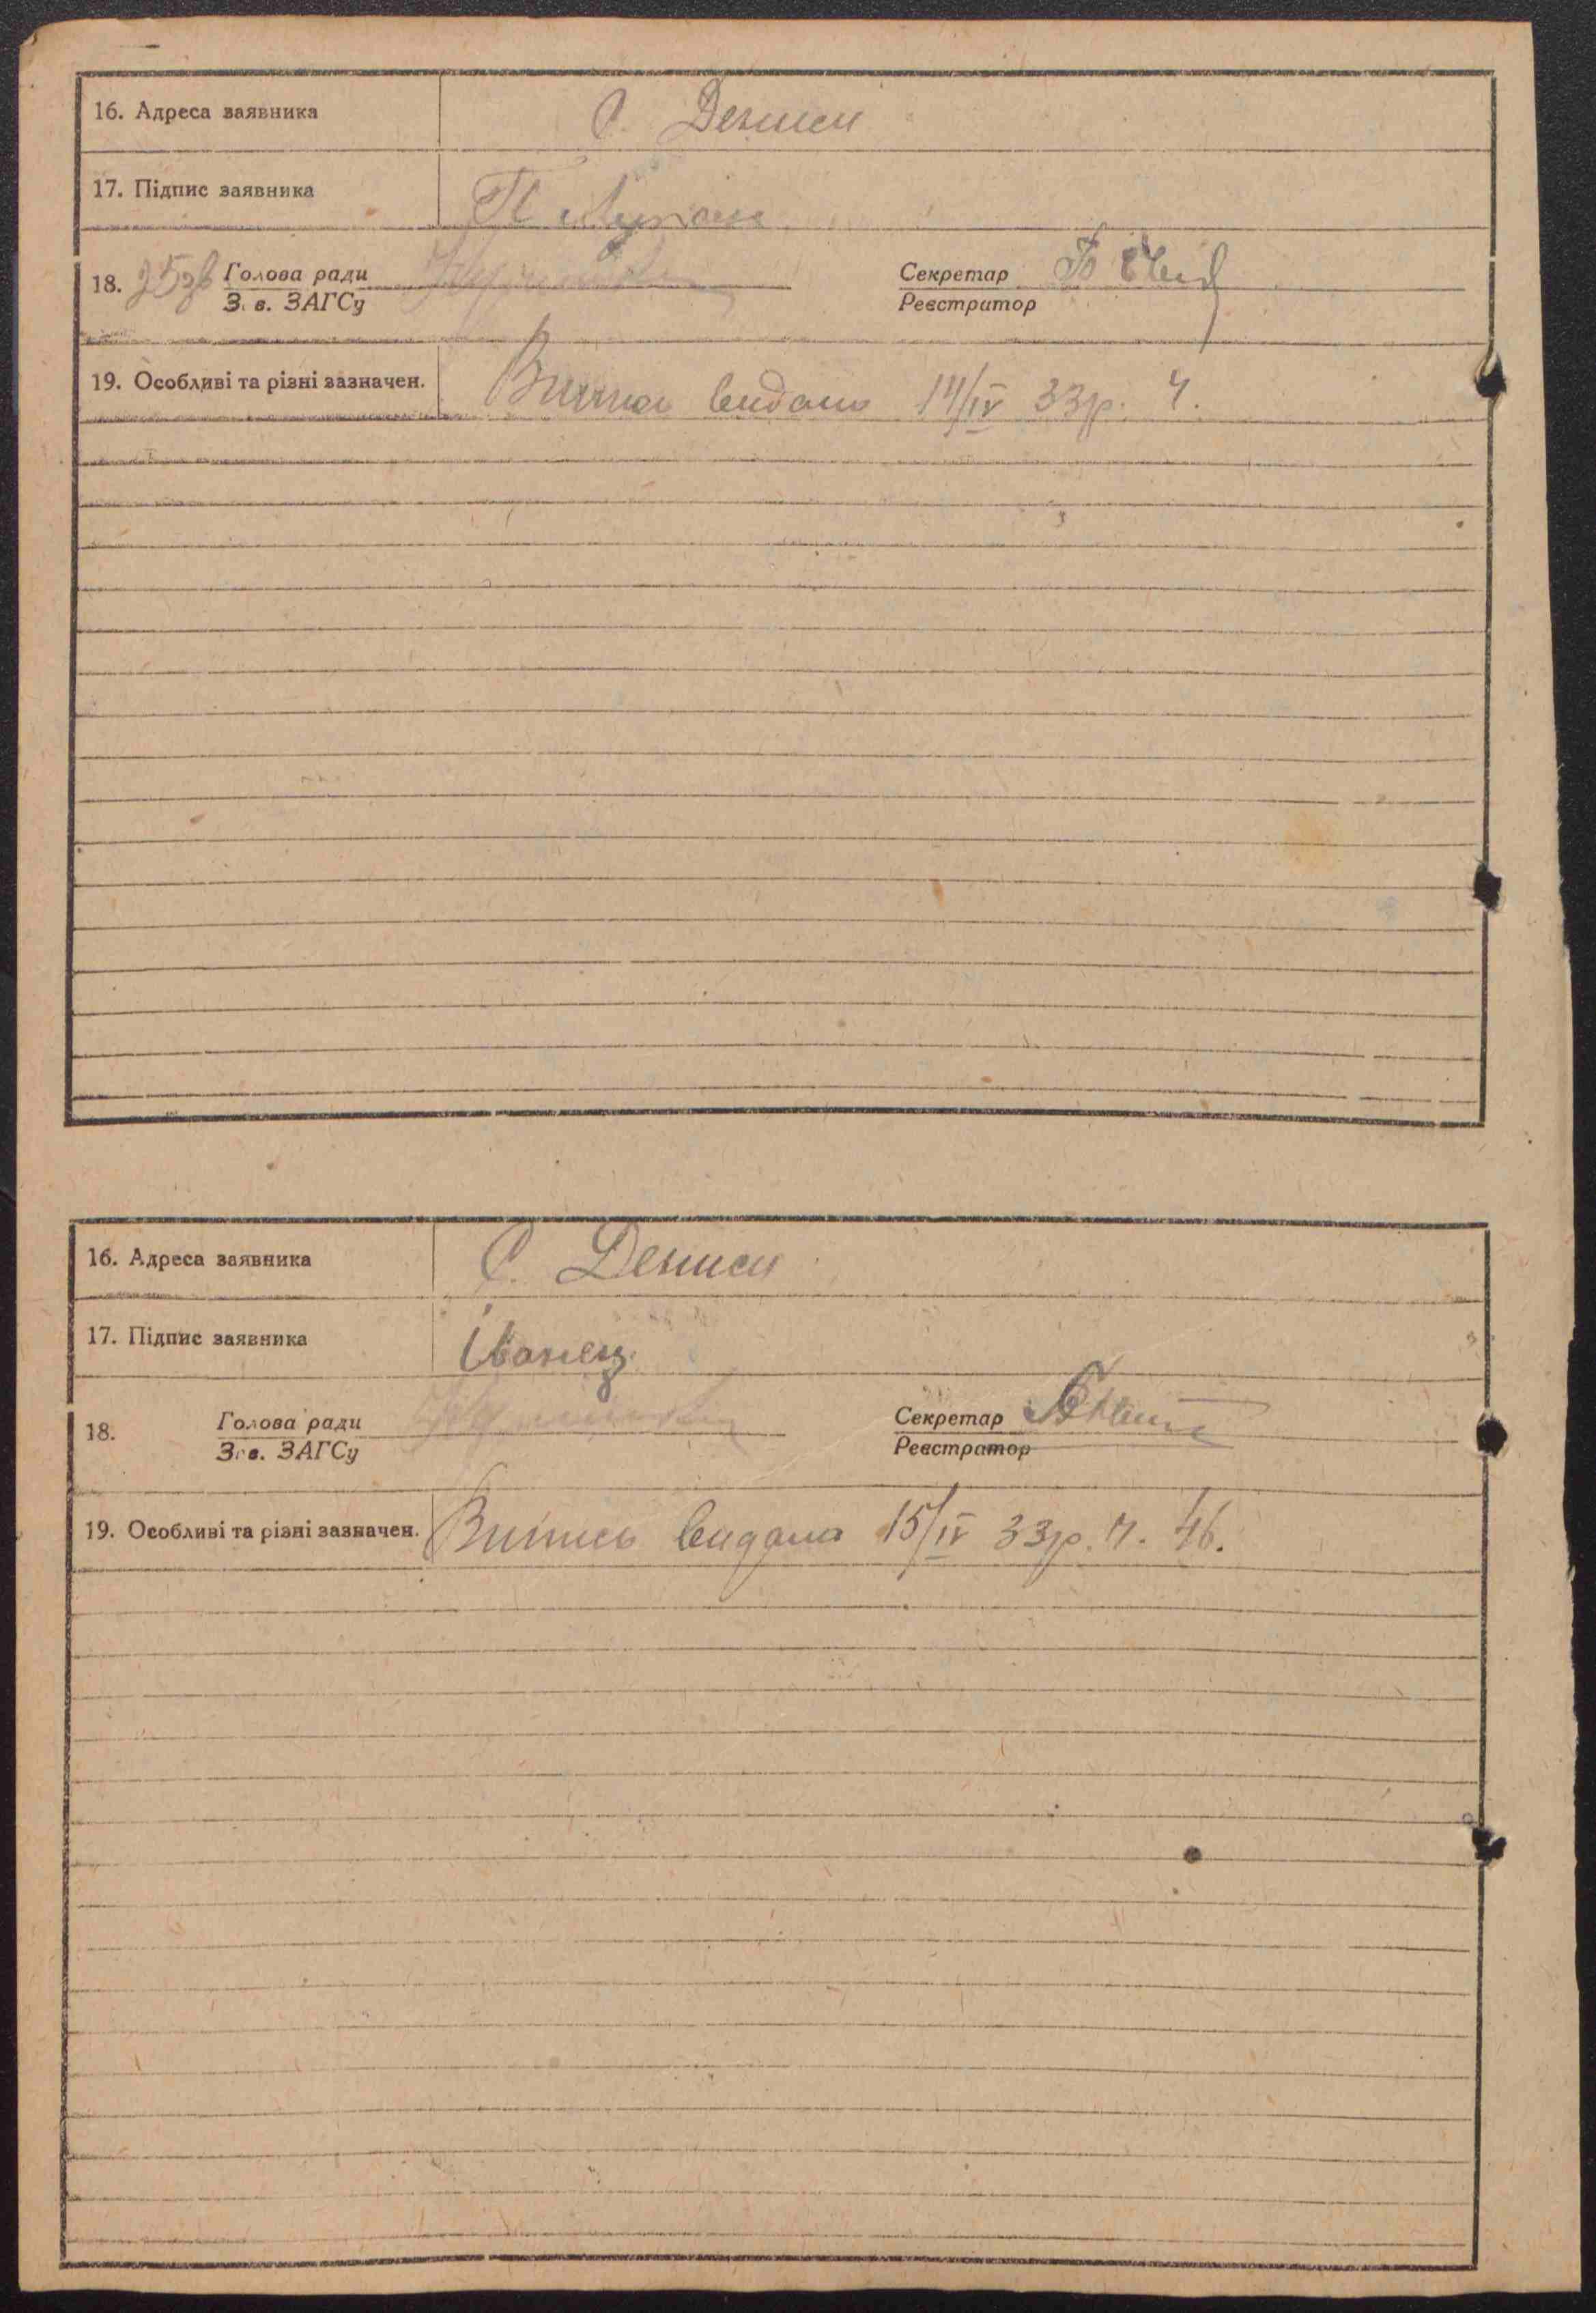 16. Адреса заявника С. Дениси
17. Підпис заявника
18. Голова ради Секретар
З. в. ЗАГСу Реєстратор
19. Особливі та різні зазначен. Випись видана 14/IV 33 р. Ч.
16. Адреса заявника С. Дениси
17. Підпис заявника Іванец
18. Голова ради Секретар
Зав. ЗАГСу Реєстратор
19. Особливі та різні зазначен. Випись видана 15/IV 33 р. Ч. 46.